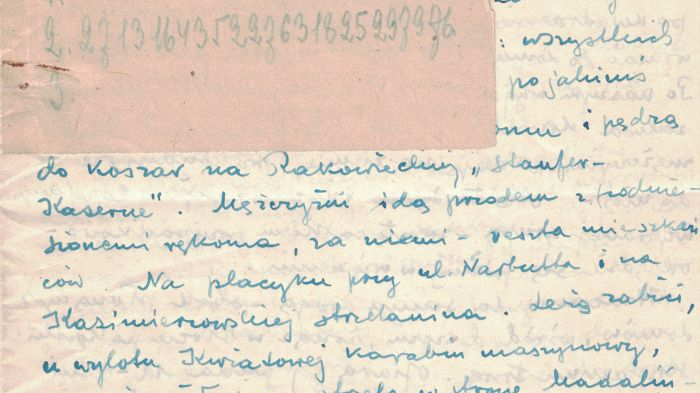 2. 27131643522763182529796
: wszystkich
3.
po jakimś
omu i pędzą
do koszar na Rakowieckiej „Staufer-
Kaserne". Mężczyźni idą przodem z podnie-
sionemi rękoma, za niemi - reszta mieszkań
ców Na placyku przy ul. Narbutta i na
Kazimierzowskiej strzelanina. Leżą zabici,
u wylotu Kwiatowej karabin maszynowy,
w stronę Madaliń-